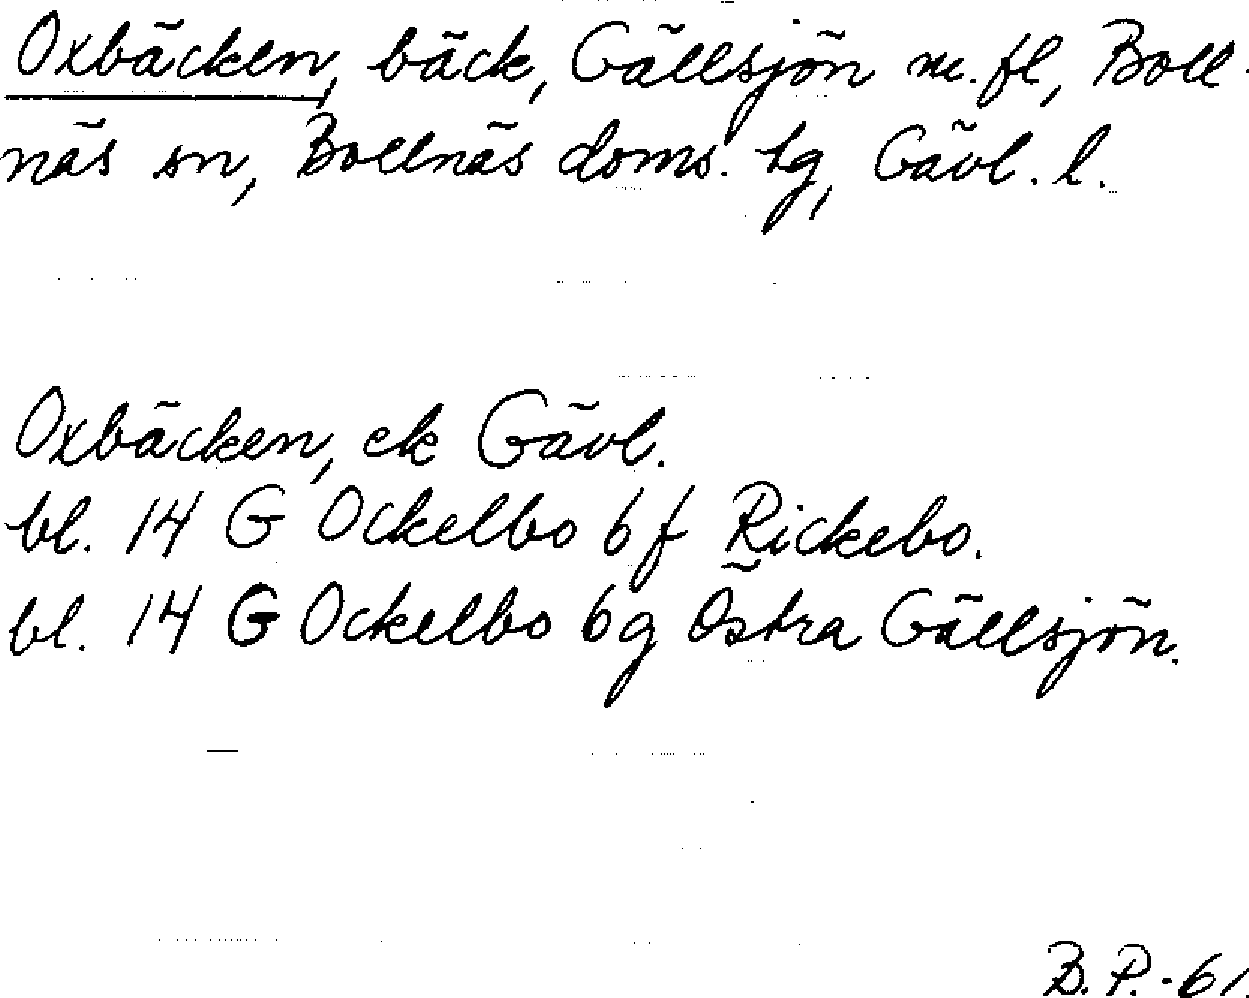 Oxbäcken, bäck, Gällsjön m.fl, Boll-
näs sn, Bollnäs doms. tg, Gävl. l.
Oxbäcken, ek Gävl.
bl. 14 G Ockelbo 6 f Rickebo.
bl. 14 G Ockelbo 6g Östra Gällsjön.
B.P.-61.